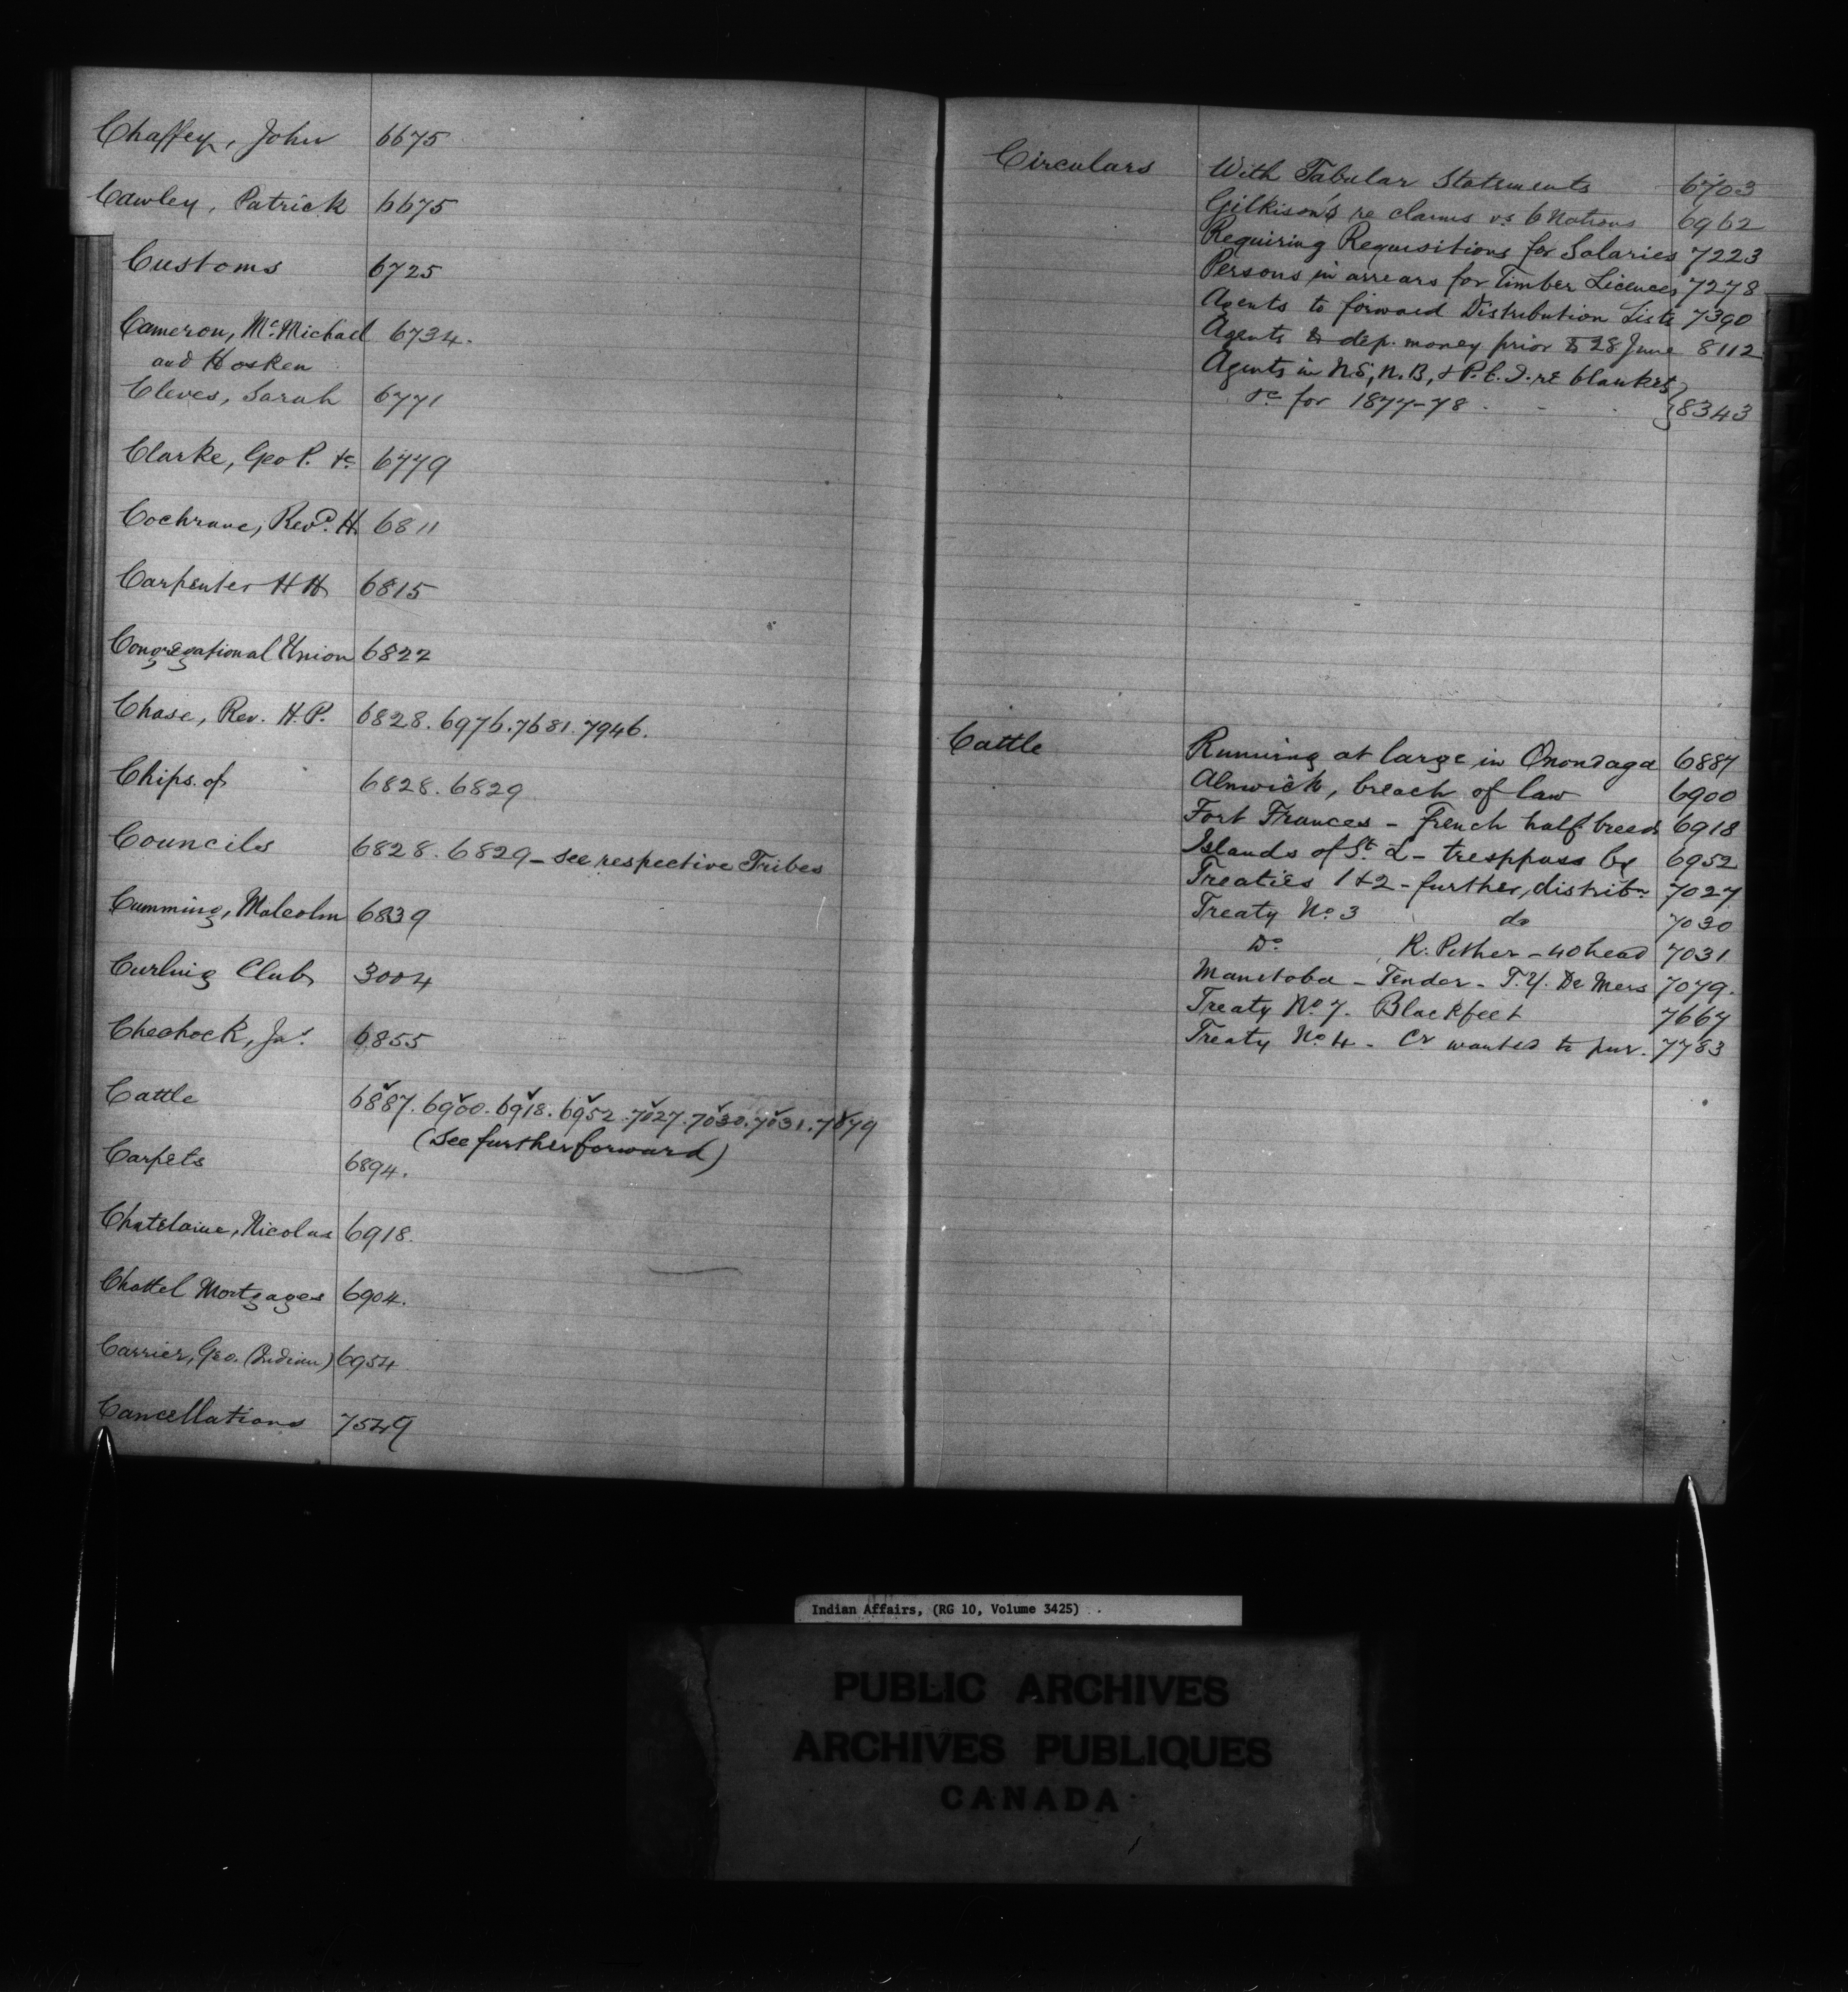 Chaffey, John 6675
Cawley, Patrick 6675
Customs 6725
Cameron, McMichael 6734.
and Hosken
Cleves, Sarah 6771
Clarke, Geo P. &c 6779
Cochrane, Revd. H. 6811
Carpenter H H 6815
Congregational Union 6822
Chase, Rev. H. P. 6828. 6976. 7681. 7946.
Chips. of 6828. 6829
Councils 6828. 6829 - see respective Tribes
Cumming, Malcolm 6839
Curling Club 3004
Chechock, Jas. 6855
Cattle 6887. 6900. 6918. 6952. 7027. 7030. 7031. 7079
(See further forward)
Carpets 6894.
Chatelaine, Nicolas 6918.
Chattel Mortgages 6904.
Carrier, Geo. (Indian) 6954
Cancellations 7549
Circulars With Tabular Statements 6703
Gilkison's re claims vs 6 Nations 6962
Requiring Requisitions for Salaries 7223
Persons in arrears for Timber Licences 7278
Agents to forward Distribution Lists 7390
Agents to dep. money prior to 28 June 8112
Agents in N.S, N.B, & P.E.I. re blankets
&c for 1877-78 - } 8343
Cattle Running at large in Onondaga 6887
Alnwick, breach of law 6900
Fort Frances - French half breeds 6918
Islands of St. L - tresppass by 6952
Treaties 1 & 2 - further, distribn 7027
Treaty No. 3 do 7030
Do R. Pither - 40 head 7031
Manitoba - Tender - T. Y. De Mers 7079.
Treaty No 7. Blackfeet 7667
Treaty No 4 - Cr wanted to pur. 7783
Indian Affairs, (RG 10, Volume 3425)
PUBLIC ARCHIVES
ARCHIVES PUBLIQUES
CANADA